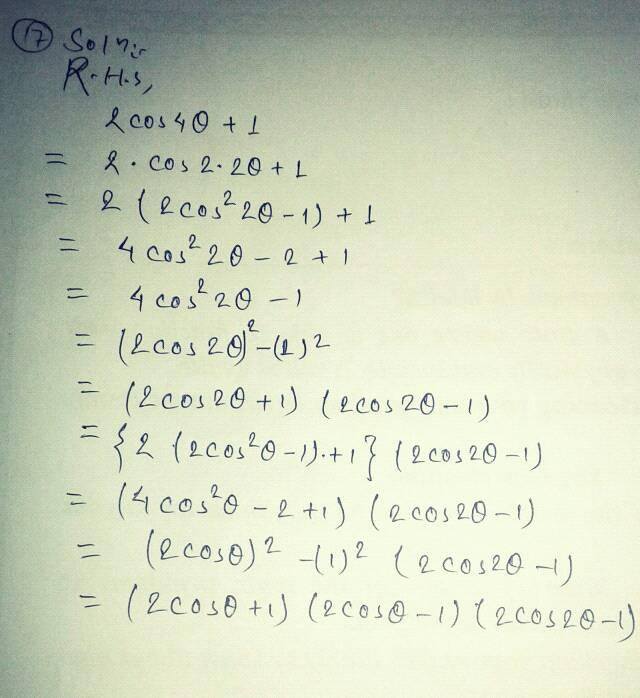 (17) Soln:-
R.H.S,
2cos4θ + 1
= 2 · cos 2·2θ + 1
= 2 (2cos² 2θ - 1) + 1
= 4 cos² 2θ - 2 + 1
= 4 cos² 2θ - 1
= (2cos 2θ)² - (1)²
= (2cos2θ + 1) (2cos2θ - 1)
= {2 (2cos²θ - 1).+1} (2cos2θ - 1)
= (4cos²θ - 2 + 1) (2cos2θ - 1)
= (2cosθ)² - (1)² (2cos2θ - 1)
= (2cosθ + 1) (2cosθ - 1) (2cos2θ - 1)